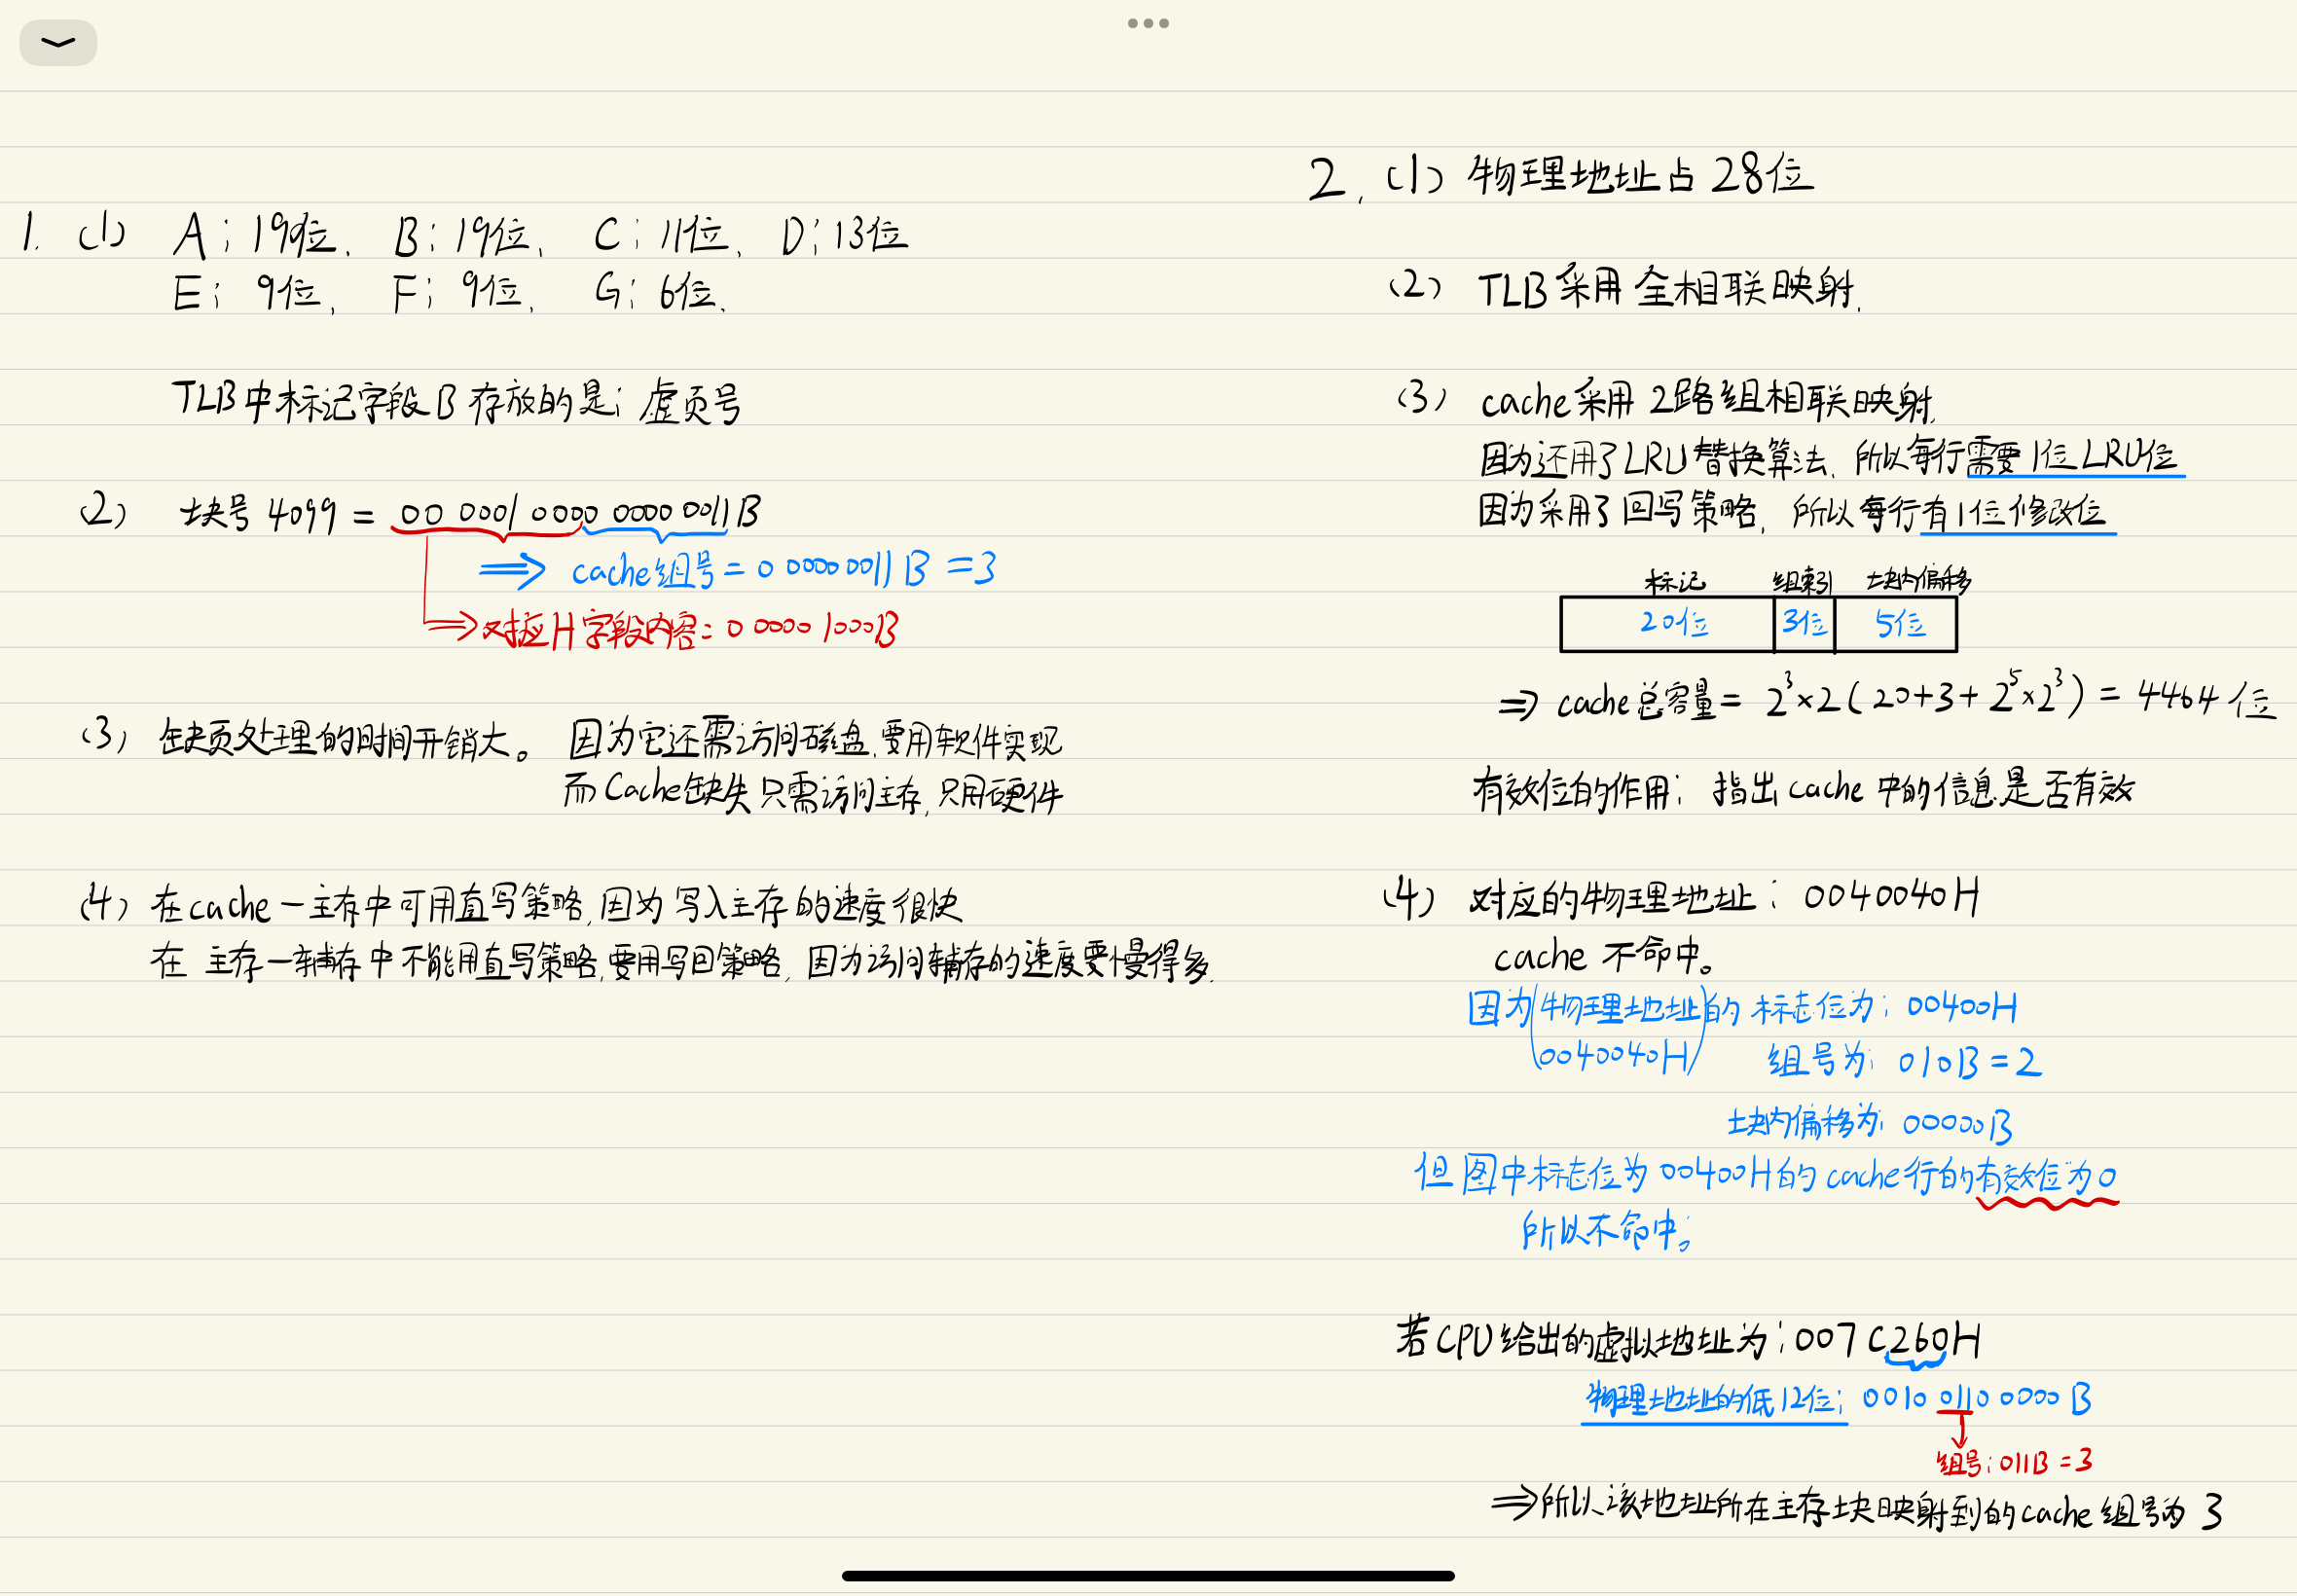 1. (1) A: 19位. B: 19位. C: 11位. D: 13位
E: 9位. F: 9位. G: 6位.
TLB中标记字段B存放的是: 虚页号
(2) 块号4099 = 00 0001 0000 0000 0011B
⇒ cache组号 = 0 0000 0011 B = 3
⇒ 对应H字段内容: 0 0000 1000B
(3) 缺页处理的时间开销大。 因为它还需访问磁盘, 要用软件实现
而Cache缺失只需访问主存, 只用硬件
(4) 在cache一主存中可用直写策略, 因为写入主存的速度很快
在 主存一辅存中不能用直写策略, 要用写回策略, 因为访问辅存的速度要慢得多.
2. (1) 物理地址占28位
(2) TLB采用全相联映射.
(3) cache采用2路组相联映射.
因为还用了LRU替换算法, 所以每行需要1位LRU位
因为采用了回写策略, 所以每行有1位修改位
标记 组索引 块内偏移
20位 3位 5位
⇒ cache总容量 = 2³×2(20+3+2⁵×2³) = 4464位
有效位的作用: 指出cache中的信息是否有效
(4) 对应的物理地址: 0040040H
cache 不命中。
因为(物理地址)的标志位为: 00400H
(0040040H) 组号为: 010B = 2
块内偏移为: 00000B
但图中标志位为00400H的cache行的有效位为0
所以不命中。
若CPU给出的虚拟地址为: 007C260H
物理地址的低12位: 0010 0110 0000 B
组号: 011B = 3
⇒所以该地址所在主存块映射到的cache组号为 3